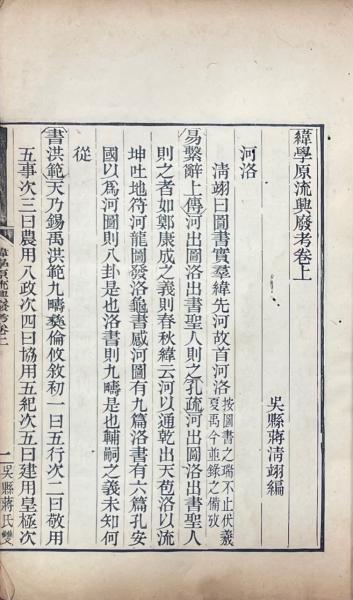 緯學原流興廢考卷上
吳縣蔣清翊編
河洛
清翊曰圖書實羣緯先河故首河洛
按圖書之瑞不止伏羲
夏禹今並錄之備攷
易繫辭上傳河出圖洛出書聖人則之孔疏河出圖洛出書聖人
則之者如鄭康成之義則春秋緯云河以通乾出天苞洛以流
坤吐地符河龍圖發洛龜書感河圖有九篇洛書有六篇孔安
國以為河圖則八卦是也洛書則九疇是也輔嗣之義未知何
從
書洪範天乃錫禹洪範九疇彝倫攸敘初一曰五行次二曰敬用
五事次三曰農用八政次四曰協用五紀次五曰建用皇極次
緯學原流興廢考卷上
一
吳縣蔣氏雙